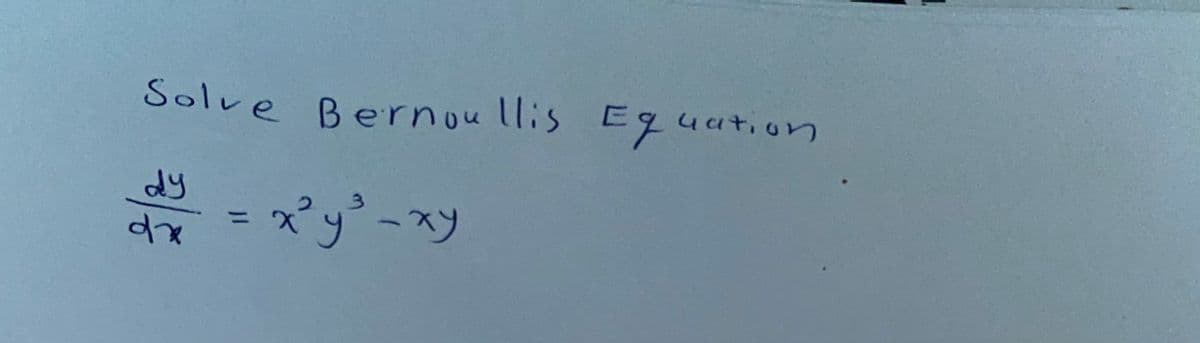 Solve Bernoullis Equation
dy/dx = x²y³ - xy